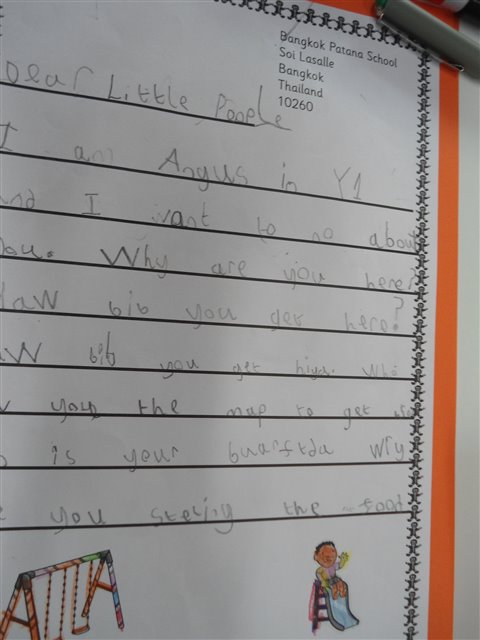 Bangkok Patana School
Soi Lasalle
Bangkok
Thailand
10260
Dear Little People
I am Angus in Y1
and I want to no about
you. Why are you here?
Haw bib you get here?
bib you get
you the map to get
is your
you the food